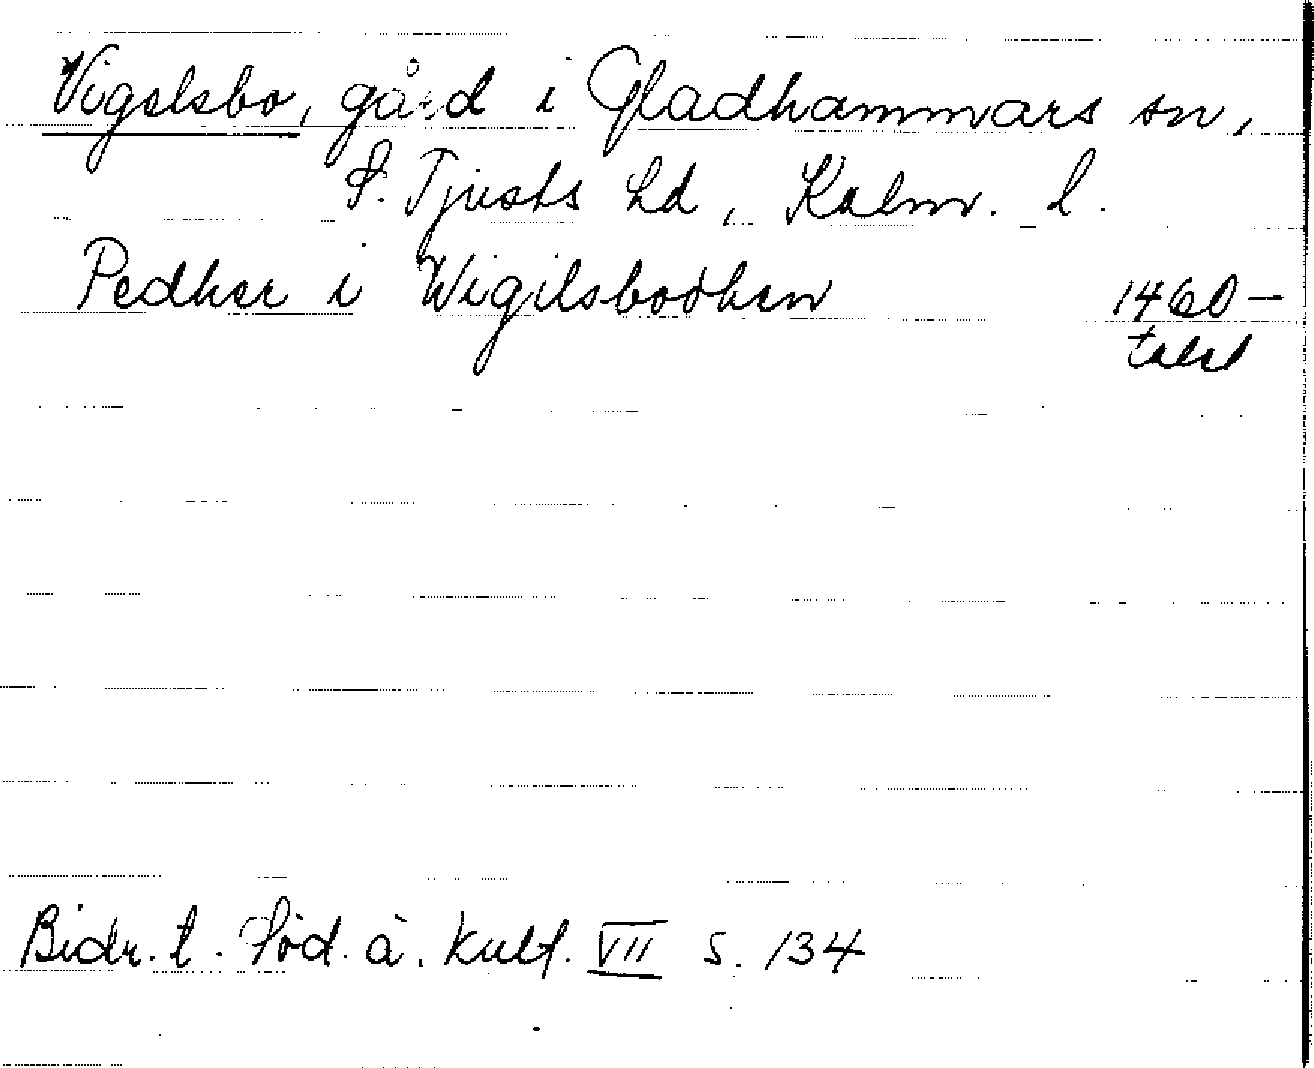 Vigelsbo, gård i Gladhammars sn,
S. Tjusts hd, Kalm. l.
Pedher i Wigilsbodhen 1460-
talet
Bidr. t. Söd. ä. kult. VII s. 134